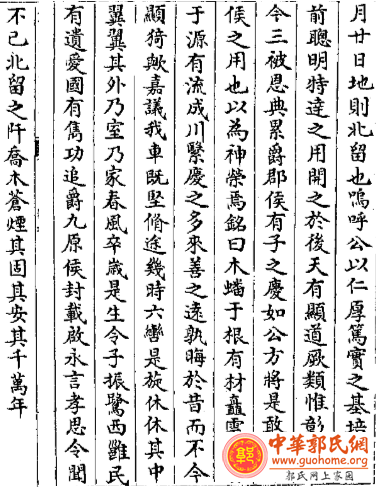 月廿日地則北留也嗚呼公以仁厚篤實之基培
前聰明特達之用開之於後天有顯道厥類惟彰
今三被恩典累爵郡侯有子之慶如公方將是敢
侯之用也以為神榮焉銘曰木蟠于根有材矗雲
于源有流成川繄慶之多來善之遠孰晦於昔而不今
顯猗歟嘉議我車既堅脩途幾時六轡是旋休休其中
翼翼其外乃室乃家春風卒歲是生令子振鷺西雝民
有遺愛國有雋功追爵九原侯封載啟永言孝思令聞
不已北留之阡喬木蒼煙其固其安其千萬年
郭
中華郭氏網
www.guohome.org
郭氏網上家園